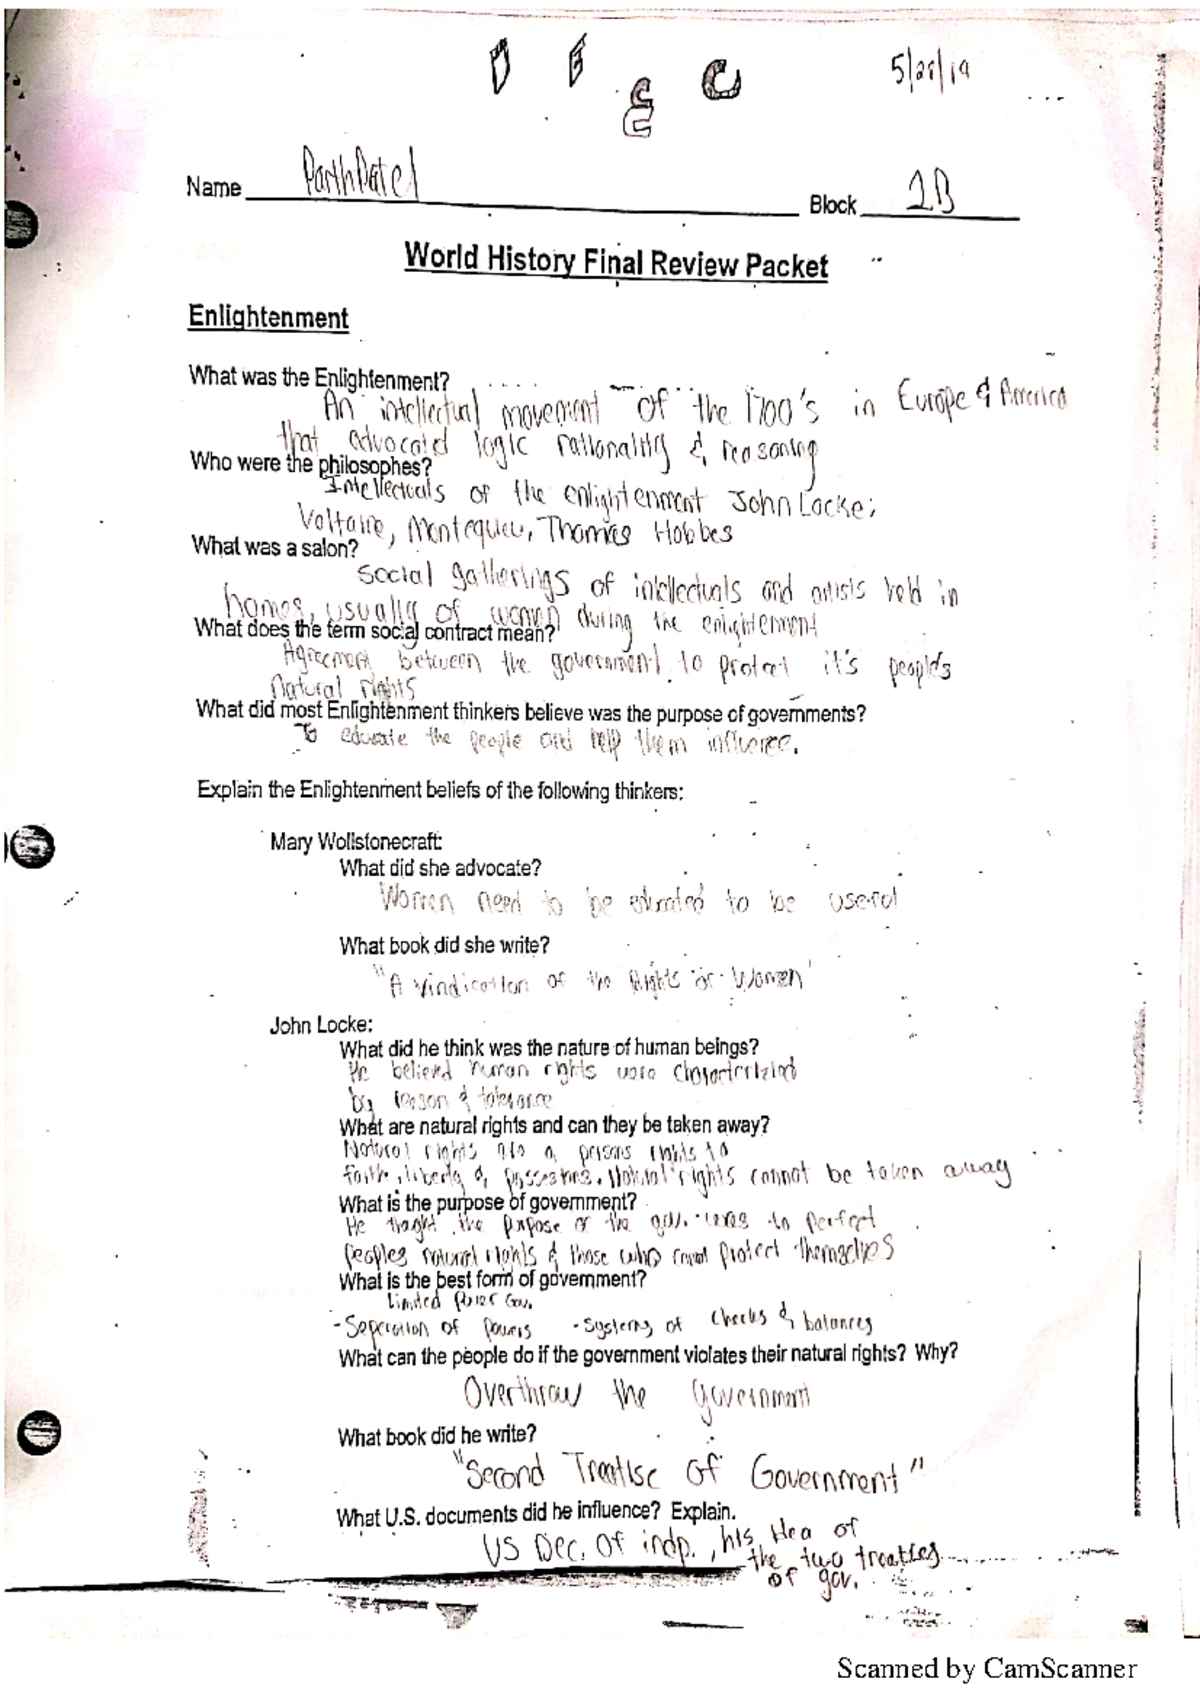 D E & C
5/28/19
Name Parth Patel Block 2B
World History Final Review Packet
Enlightenment
What was the Enlightenment?
An intellectual movement of the 1700's in Europe & America
that advocated logic rationality & reasoning
Who were the philosophes?
Intellectuals of the enlightenment John Locke;
Voltaire, Montequieu, Thomas Hobbes
What was a salon?
social gatherings of intellectuals and artists held in
homes, usually of women during the enlightenment
What does the term social contract mean?
Agreement between the government to protect it's people's
natural rights
What did most Enlightenment thinkers believe was the purpose of governments?
To educate the people and help them influence.
Explain the Enlightenment beliefs of the following thinkers:
Mary Wollstonecraft:
What did she advocate?
Women need to be educated to be useful
What book did she write?
"A Vindication of the Rights of Women'
John Locke:
What did he think was the nature of human beings?
He believed human rights were characterized
by reason & tolerance
What are natural rights and can they be taken away?
Natural rights are a persons rights to
faith, liberty & possesions. Natural rights cannot be taken away
What is the purpose of government?
He thought the purpose of the gov. was to perfect
peoples natural rights & those who cannot protect themselves
What is the best form of government?
Limited Power Gov.
-Seperation of Powers -Systems of checks & balances
What can the people do if the government violates their natural rights? Why?
Overthrow the government
What book did he write?
"Second Treatise of Government"
What U.S. documents did he influence? Explain.
US Dec. of indp., his idea of
the two treaties
of gov.
Scanned by CamScanner